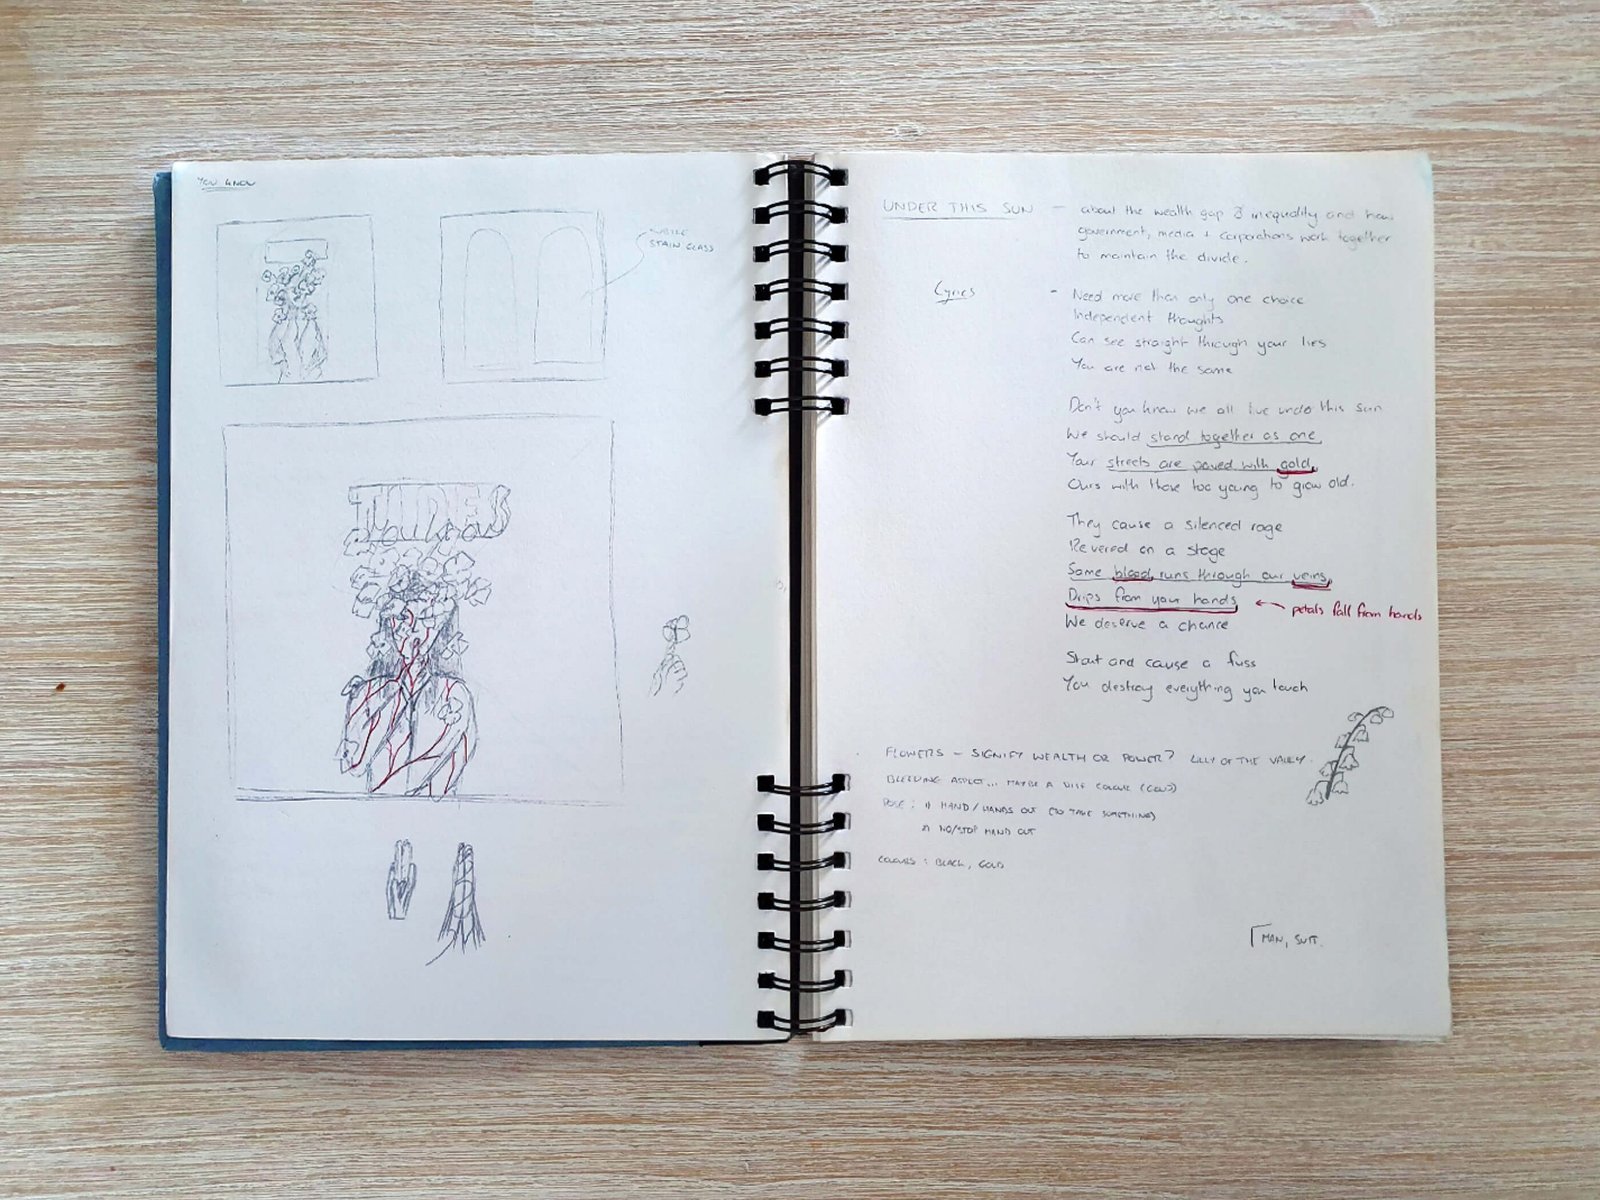 YOU KNOW
SUBTLE
STAIN GLASS
TIDES
UNDER THIS SUN — about the wealth gap & inequality and how
government, media + corporations work together
to maintain the divide.
Lyrics
- Need more than only one choice
Independent thoughts
Can see straight through your lies
You are not the same
Don't you know we all live under this sun
We should stand together as one
Your streets are paved with gold,
Ours with those too young to grow old.
They cause a silenced rage
Revered on a stage
Same blood runs through our veins,
Drips from your hands
← petals fall from hands
We deserve a chance
Shout and cause a fuss
You destroy everything you touch
FLOWERS — SIGNIFY WEALTH OR POWER? LILLY OF THE VALLEY.
BLEEDING ASPECT... MAYBE A DIFF COLOUR (GOLD)
POSE: 1) HAND/HANDS OUT (TO TAKE SOMETHING)
2) NO/STOP HAND OUT
COLOURS: BLACK, GOLD
MAN, SUIT.